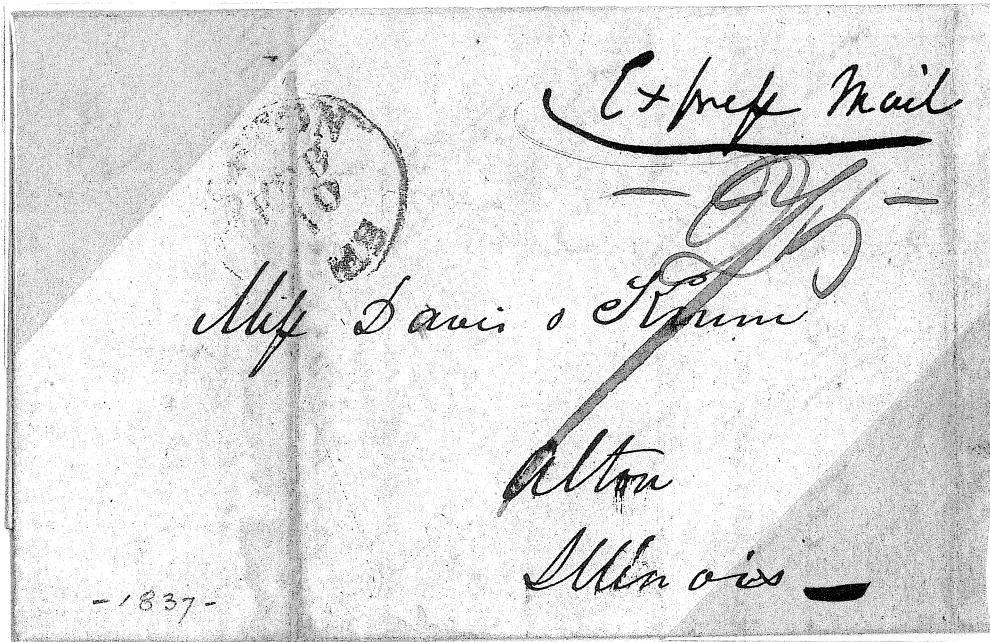 Express Mail
Miss Davis & Krum
Alton
Illinois
-1837-